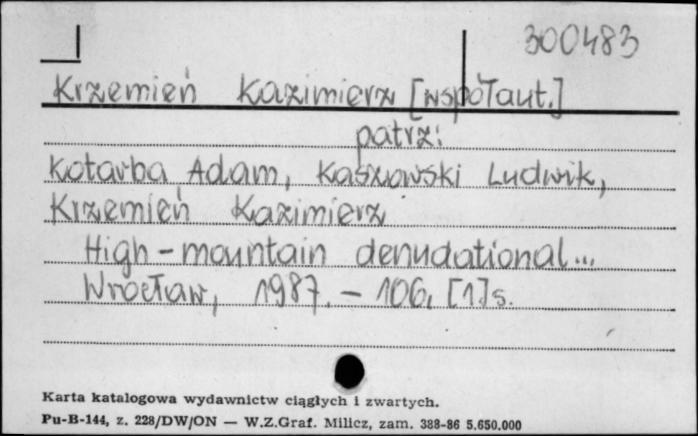 300483
Krzemień Kazimierz [współaut.]
patrz:
Kotarba Adam, Kaszowski Ludwik,
Krzemień Kazimierz
High-mountain denudational...
Wrocław, 1987. – 106, [1] s.
Karta katalogowa wydawnictw ciągłych i zwartych.
Pu-B-144, z. 228/DW/ON — W.Z.Graf. Milicz, zam. 388-86 5.650.000